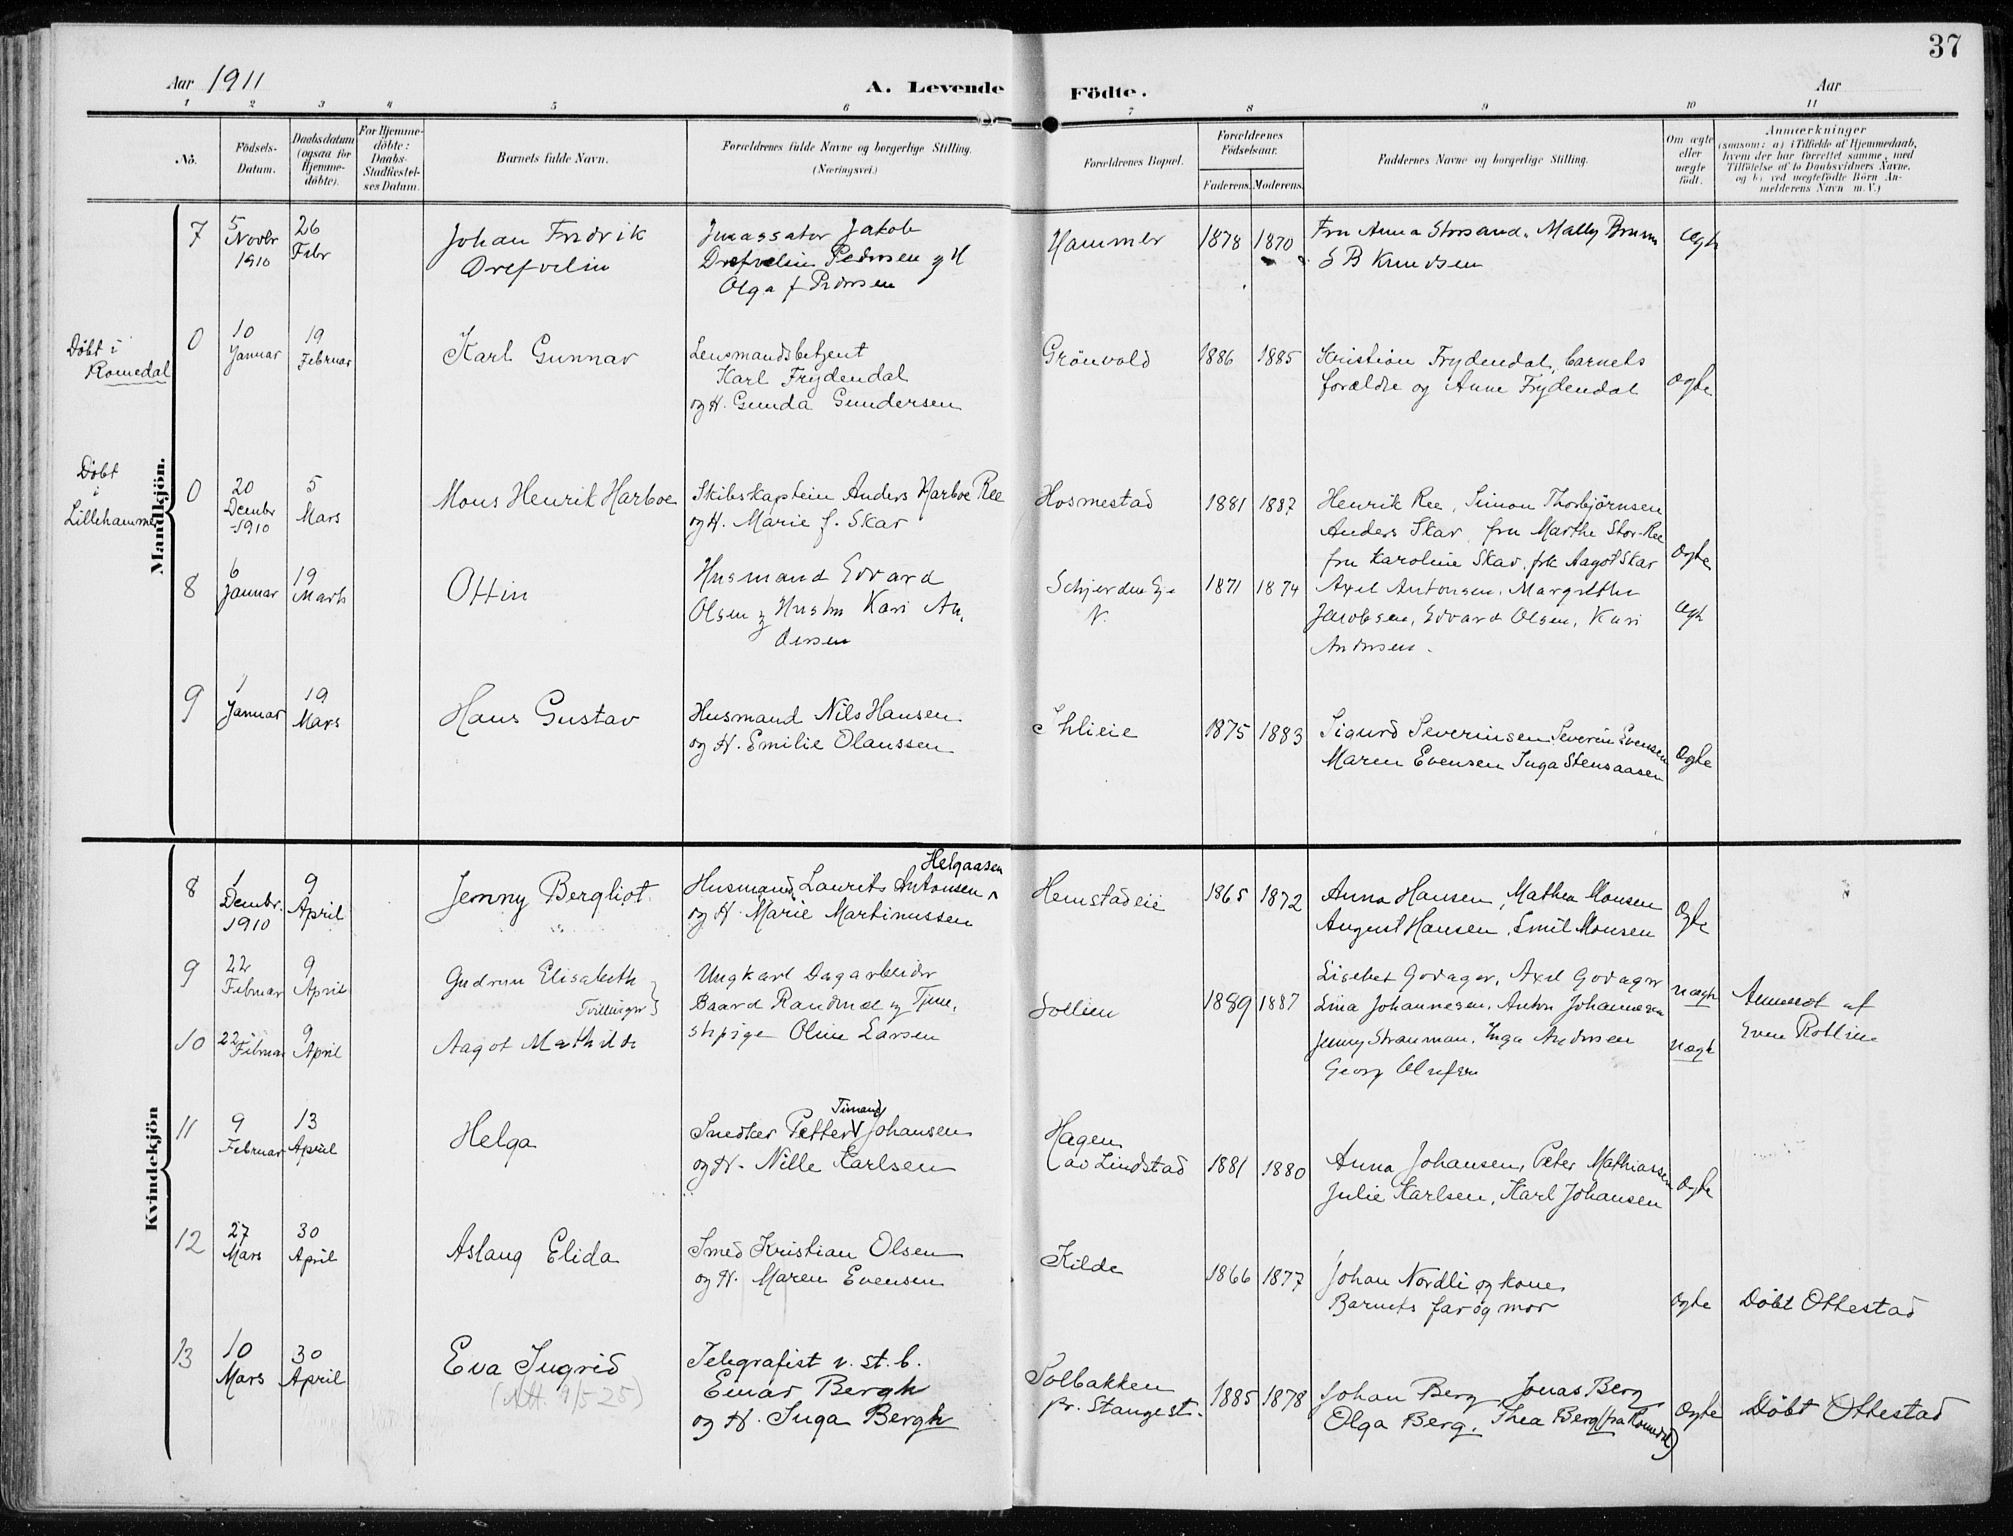 37
Aar 1911
A. Levende
Födte.
Aar
1 2 3 4 5 6 7 8 9 10 11
No.
Födsels-Datum.
Daabsdatum (ogsaa for Hjemme-döbte).
For Hjemme-döbte: Daabs-Stadfæstel-ses Datum.
Barnets fulde Navn.
Forældrenes fulde Navne og borgerlige Stilling. (Næringsvei.)
Forældrenes Bopæl.
Forældrenes Födselsaar.
Faderens. Moderens.
Faddernes Navne og borgerlige Stilling.
Om ægte eller uægte födt.
Anmærkninger
(saasom: a) i Tilfælde af Hjemmedaab, hvem der har forrettet samme, med Tilföielse af to Daabsvidners Navne, og b) ved uægtefödte Börn An-melderens Navn m. V.)
Mandkjön.
7 5 Novbr 1910 26 Febr Johan Fredrik Drefvelin
Drefvelin Pedersen og H
Olga f Pedersen
Hammer 1878 1870 Fru Anna Storsand. Mally Bruun
S B Knudsen ægte
Döbt i Romedal
0 10 Januar 19 Februar Karl Gunnar Lensmandsbetjent
Karl Frydendal
og H. Gunda Gundersen
Grönvold 1886 1885 Kristian Frydendal, barnets
forældre og Anne Frydendal ægte
Döbt i Lillehammer
0 20 Decmbr 1910 5 Mars Mons Henrik Harboe Skibskaptein Anders Harboe Ree
og H. Marie f. Skar
Hosmestad 1881 1887 Henrik Ree, Simon Thorbjørnsen
Anders Skar fru Marthe Stor-Ree
fru Karoline Skar, frk Aagot Skar ægte
8 6 Januar 19 Marts Ottin Husmand Edvard
Olsen og Hustru Kari An-
dersen
1871 1874 Axel Antonsen, Margrethe
Jacobsen, Edvard Olsen, Kari
Andersen. ægte
9 1 Januar 19 Mars Hans Gustav Husmand Nils Hansen
og H. Emilie Olaussen
Ihlieie 1875 1883 Sigurd Severinsen, Severin Evensen
Maren Evensen Inga Stensaasen ægte
Kvindekjön
8 1 Decmbr. 1910 9 April Jenny Bergliot. Husmand Laurits Antonsen Helgaasen
og H. Marie Martinussen
Hemstadeie 1865 1872 Anna Hansen, Mathea Monsen
August Hansen, Emil Monsen ægte
9 22 Februar 9 April Gudrun Elisabeth
Tvillinger
Ungkarl Dagarbeider
Baard Randmæl og Tjene-
stepige Oline Larsen
Sollien 1889 1887 Lisebet Godager, Axel Godager
Lina Johannesen, Anton Johannesen uægte
Anmeldt af
Even Rotlien
10 22 Februar 9 April Aagot Mathilde
Jenny Strauman, Inga Andersen
Georg Olufsen uægte
11 9 Februar 13 April Helga Snedker Petter Timand Johansen
og H. Nille Karlsen
Hagen
av Lindstad 1881 1880 Anna Johansen, Peter Mathiassen
Julie Karlsen, Karl Johansen ægte
12 27 Mars 30 April Aslaug Elida Smed Kristian Olsen
og H. Maren Evensen
Kilde 1866 1877 Johan Nordli og kone
Barnets far og mor ægte Döbt Ottestad
13 10 Mars 30 April Eva Ingrid Telegrafist v. st. b.
Einar Bergh
og H. Inga Bergh
Solbakken
pr. Stange st. 1885 1878 Johan Berg Jonas Berg
Olga Berg, Thea Berg (fra Romedal) ægte Döbt Ottestad